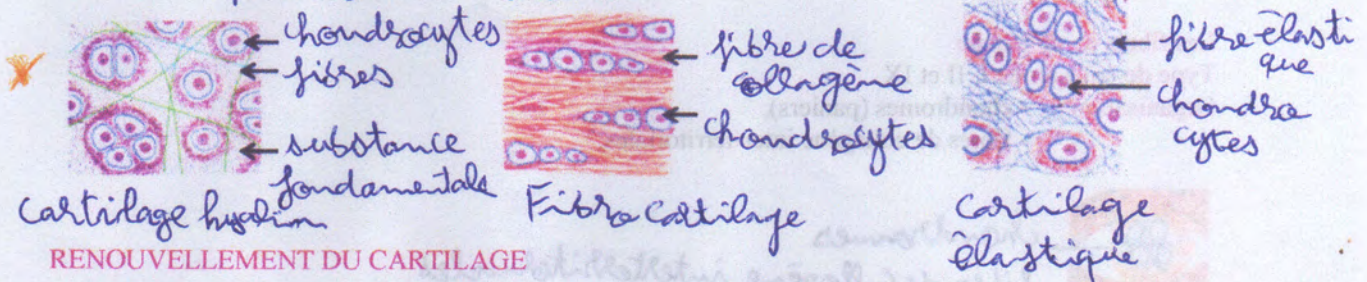 chondrocytes
fibres
substance
fondamentale
cartilage hyalin
fibre de
collagène
chondrocytes
Fibro cartilage
fibre élasti
que
chondro
cytes
cartilage
élastique
RENOUVELLEMENT DU CARTILAGE